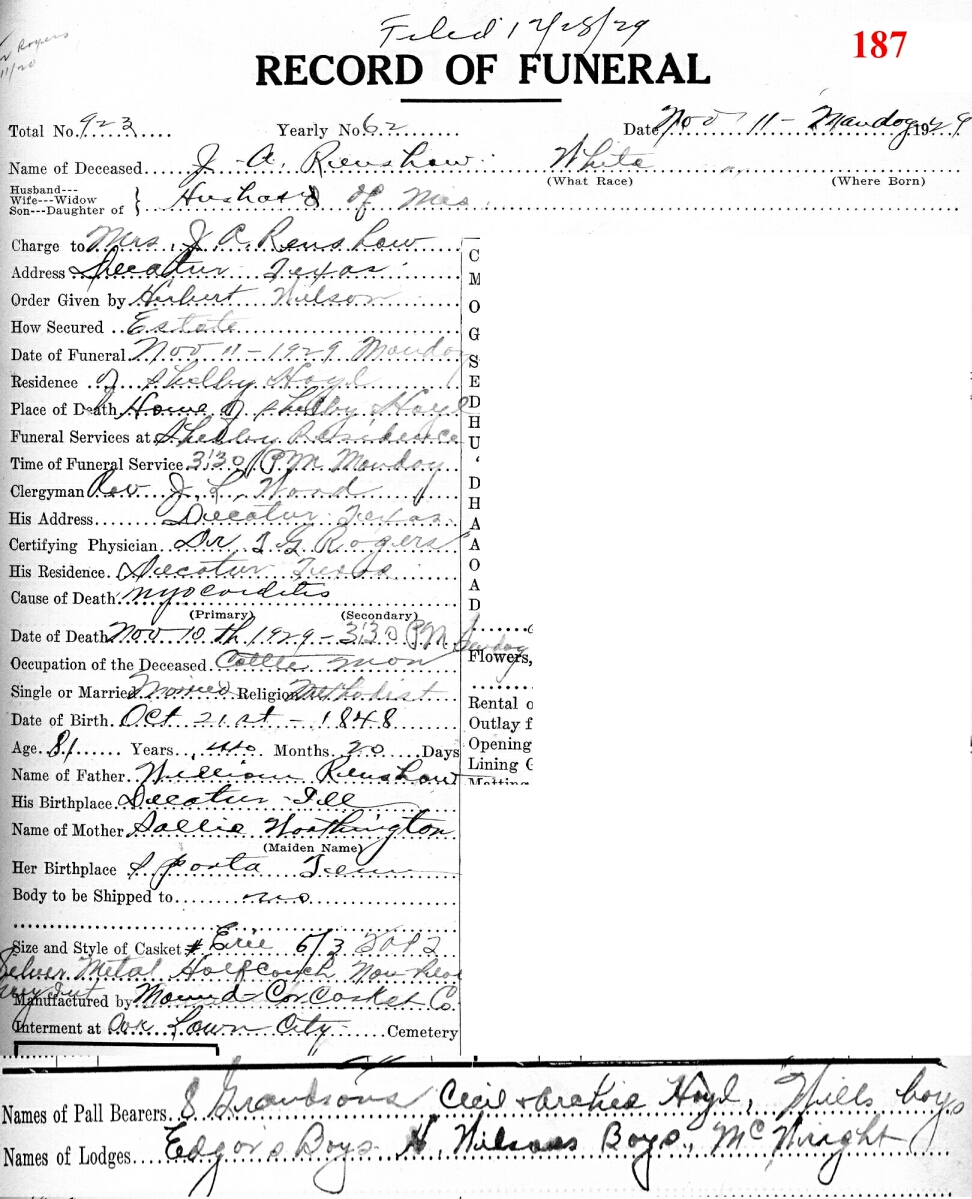 Rogers
11/20
Filed 12/28/29
187
RECORD OF FUNERAL
Total No. 923 Yearly No. 62 Date Nov 11 - Monday 1929
Name of Deceased J. A. Renshaw White
(What Race) (Where Born)
Husband---
Wife---Widow
Son---Daughter of } Husband of Mrs
Charge to Mrs. J A Renshaw
Address Decatur Texas
Order Given by Hubert Wilson
How Secured Estate
Date of Funeral Nov 11 - 1929 Monday
Residence of Shelby Hoyl
Place of Death Home of Shelby Hoyl
Funeral Services at Shelby Residence
Time of Funeral Service 3:30 P.M. Monday
Clergyman Rev J. L. Wood
His Address Decatur Texas
Certifying Physician Dr T G Rogers
His Residence Decatur Texas
Cause of Death myocarditis
(Primary) (Secondary)
Date of Death Nov 10th 1929 - 3:30 P.M. Sunday
Occupation of the Deceased Cattle man
Single or Married Married Religion Methodist
Date of Birth Oct 21st - 1848
Age 81 Years no Months 20 Days
Name of Father William Renshaw
His Birthplace Decatur Ill
Name of Mother Sallie Worthington
(Maiden Name)
Her Birthplace Sporta Tenn
Body to be Shipped to no
Size and Style of Casket # Erie 6/3
Silver Metal Half couch
Manufactured by Mound City Casket Co.
Interment at Oak Lawn City Cemetery
C
M
O
G
S
E
D
H
U
'
D
H
A
A
O
A
D
Flowers,
Rental o
Outlay f
Opening
Lining G
Matting
Names of Pall Bearers 8 Grandsons Cecil + Archie Hoyl, Wills boys
Names of Lodges Edgar's Boys H. Wilsons Boys, Mc Wright